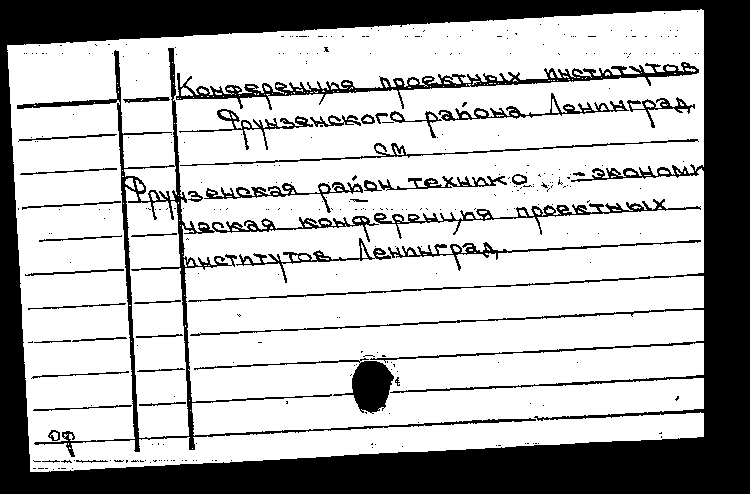 Конференция проектных институтов
Фрунзенского района. Ленинград.
см.
Фрунзенская район. технико - экономи
ческая конференция проектных
институтов. Ленинград.
оф